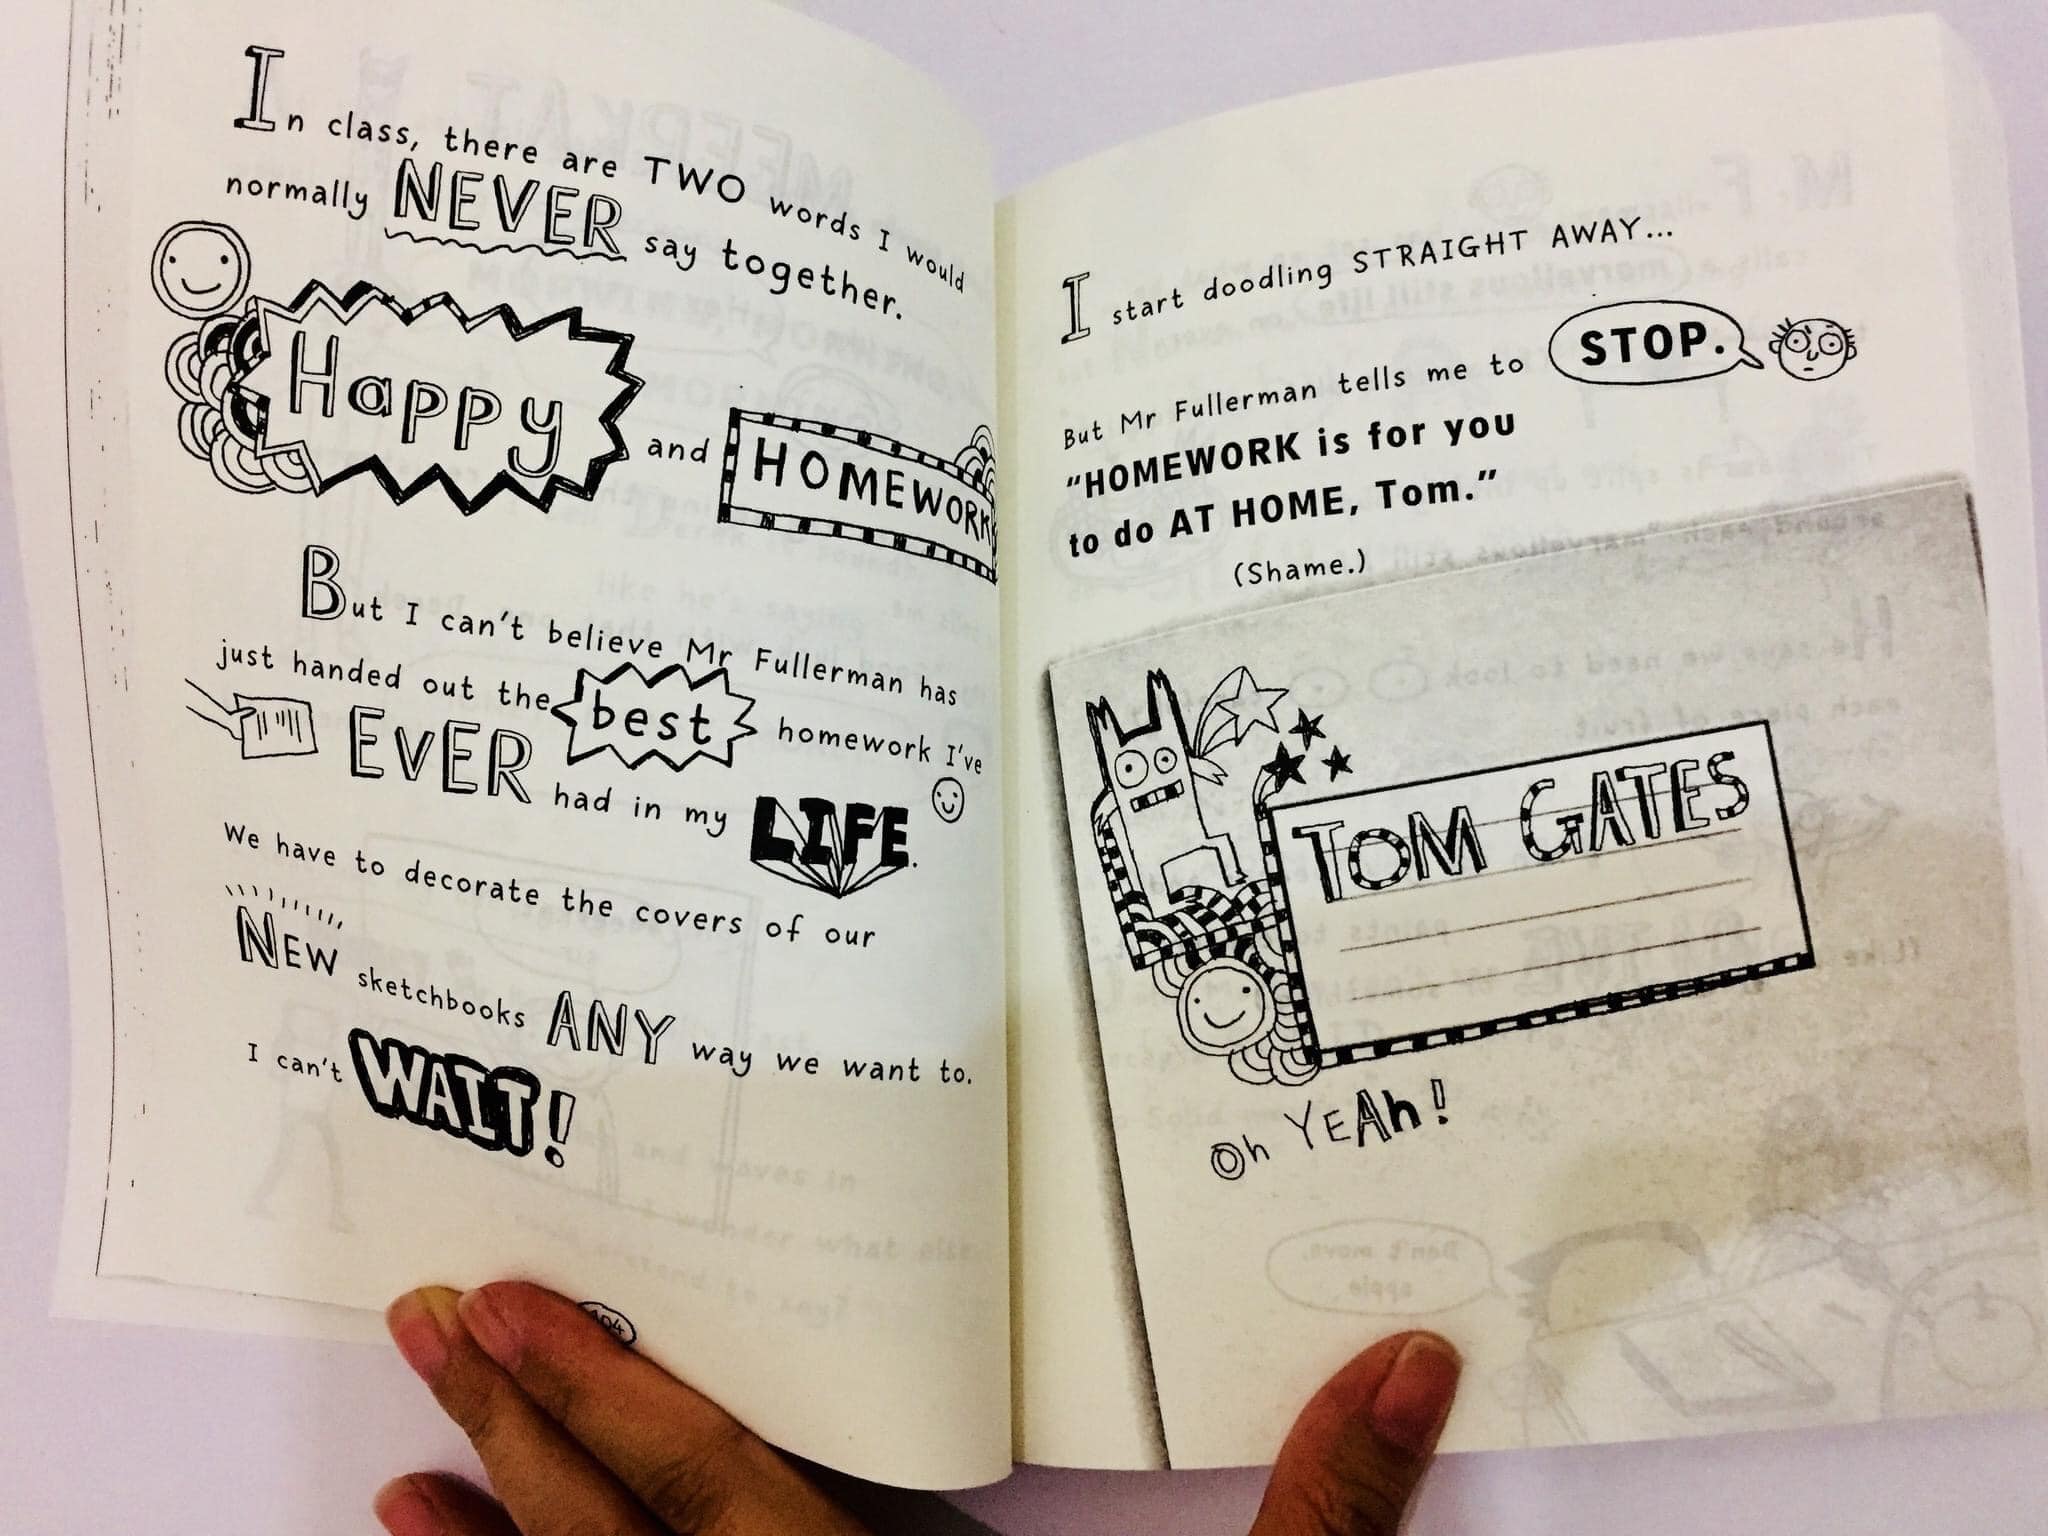 In class, there are TWO words I would
normally NEVER say together.
Happy and HOMEWORK
But I can't believe Mr Fullerman has
just handed out the best homework I've
EVER had in my LIFE.
We have to decorate the covers of our
NEW sketchbooks ANY way we want to.
I can't WAIT!
104
I start doodling STRAIGHT AWAY...
But Mr Fullerman tells me to STOP.
"HOMEWORK is for you
to do AT HOME, Tom."
(Shame.)
TOM GATES
Oh YEAh!